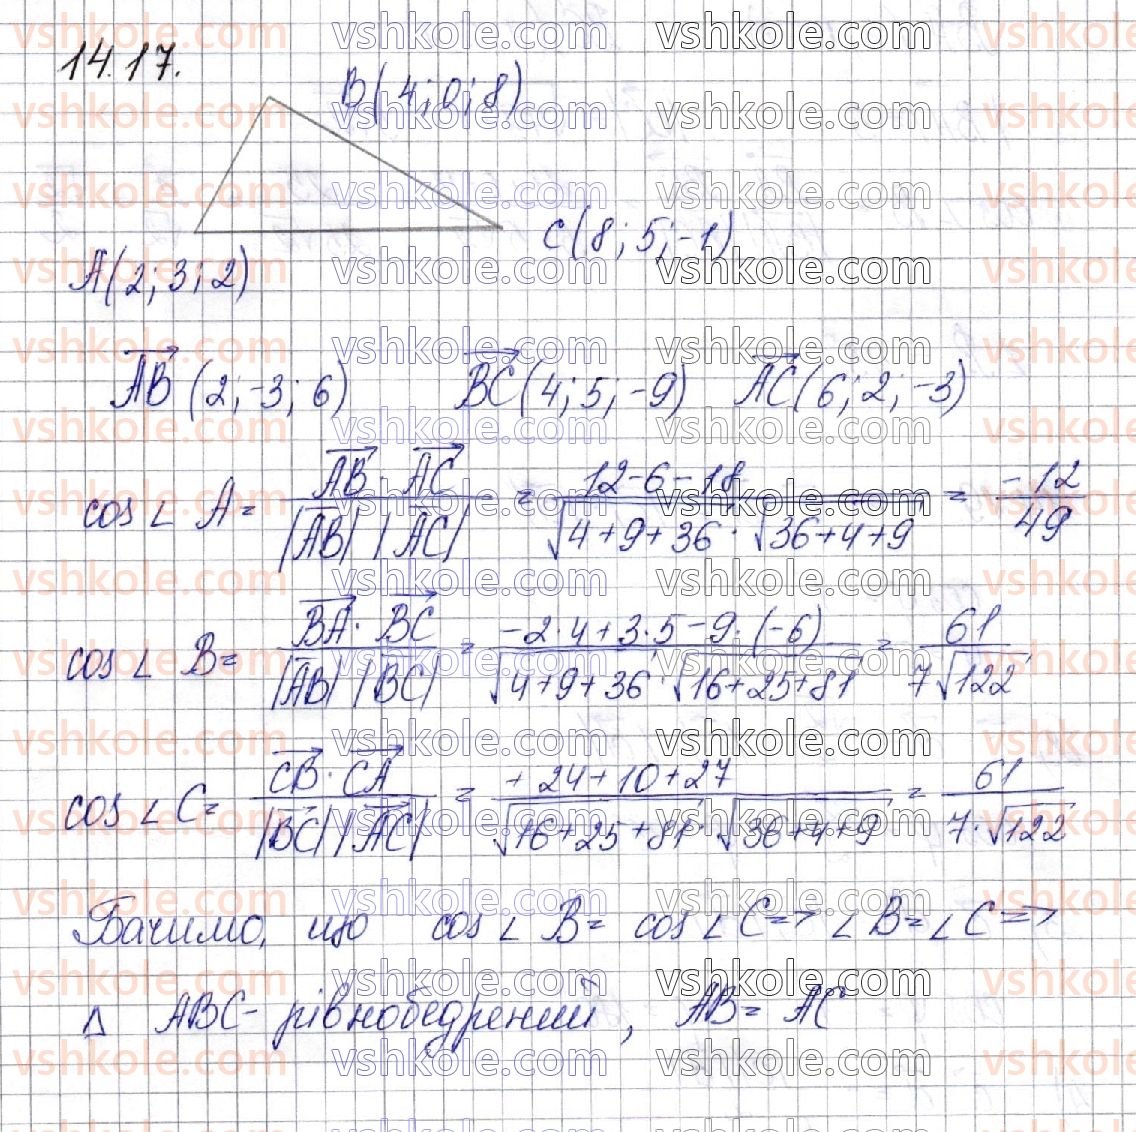 14.17.
B(4; 0; 8)
C(8; 5; -1)
A(2; 3; 2)
AB (2; -3; 6) BC (4; 5; -9) AC (6; 2; -3)
cos ∠ A = AB · AC / |AB| |AC| = 12-6-18 / √4+9+36 · √36+4+9 = -12 / 49
cos ∠ B = BA · BC / |AB| |BC| = -2·4+3·5-9·(-6) / √4+9+36 · √16+25+81 = 61 / 7√122
cos ∠ C = CB · CA / |BC| |AC| = +24+10+27 / √16+25+81 · √36+4+9 = 61 / 7·√122
Бачимо, що cos ∠ B = cos ∠ C => ∠ B = ∠ C =>
Δ ABC - рівнобедрений, AB = AC
vshkole.com